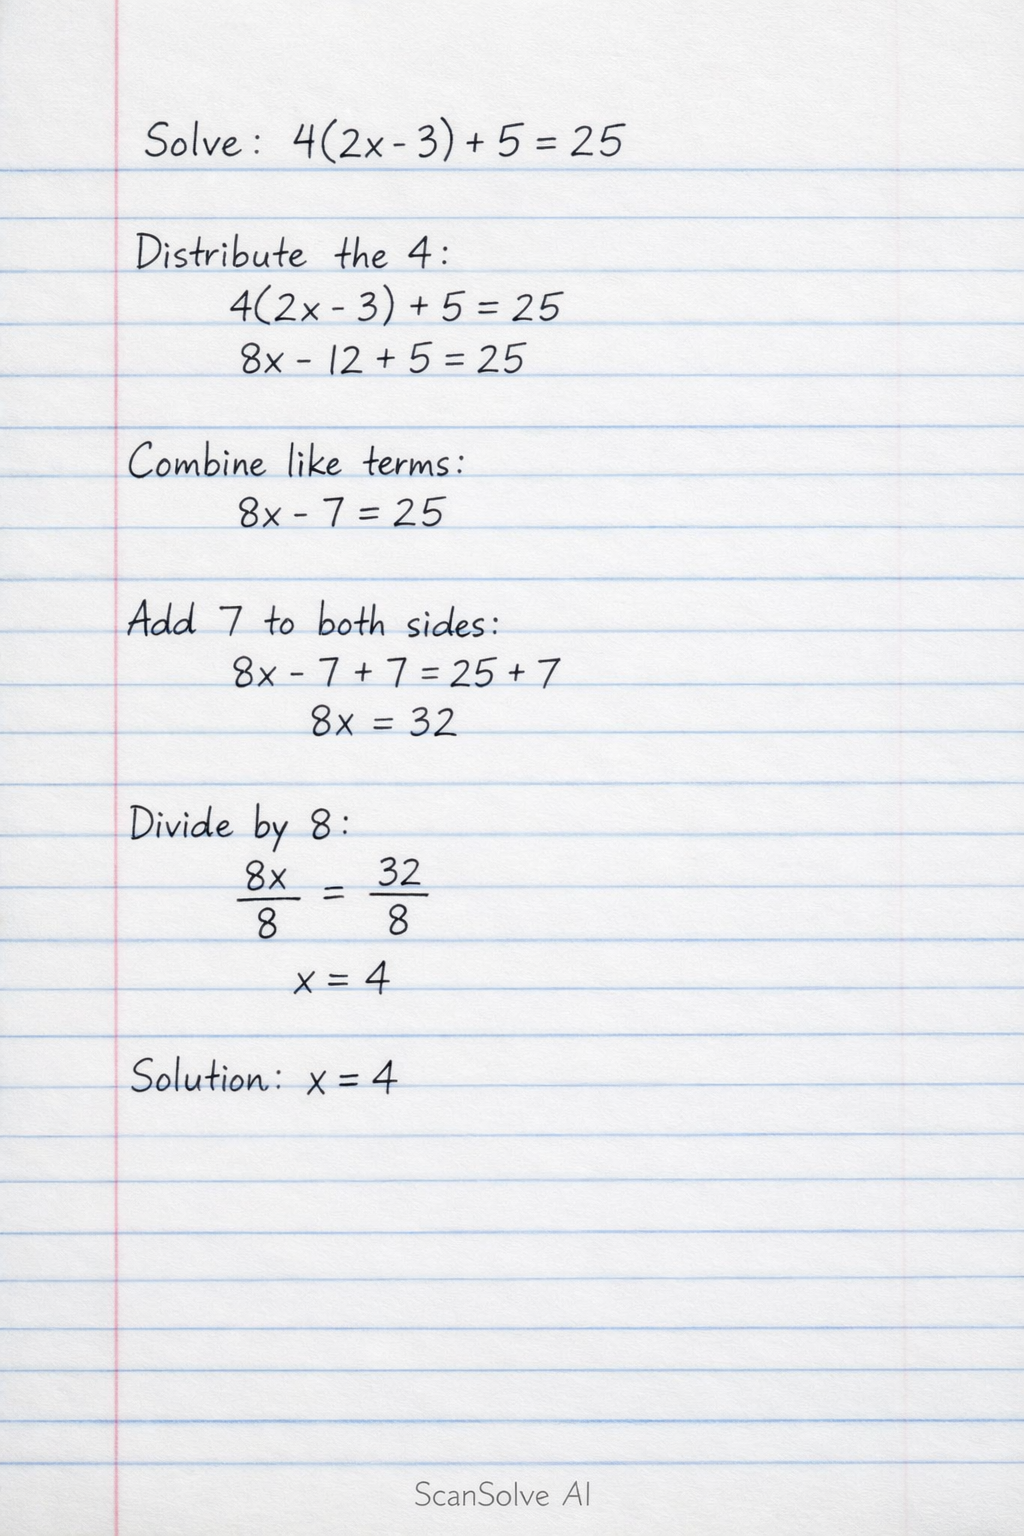 Solve: 4(2x - 3) + 5 = 25
Distribute the 4:
4(2x - 3) + 5 = 25
8x - 12 + 5 = 25
Combine like terms:
8x - 7 = 25
Add 7 to both sides:
8x - 7 + 7 = 25 + 7
8x = 32
Divide by 8:
8x/8 = 32/8
x = 4
Solution: x = 4
ScanSolve AI